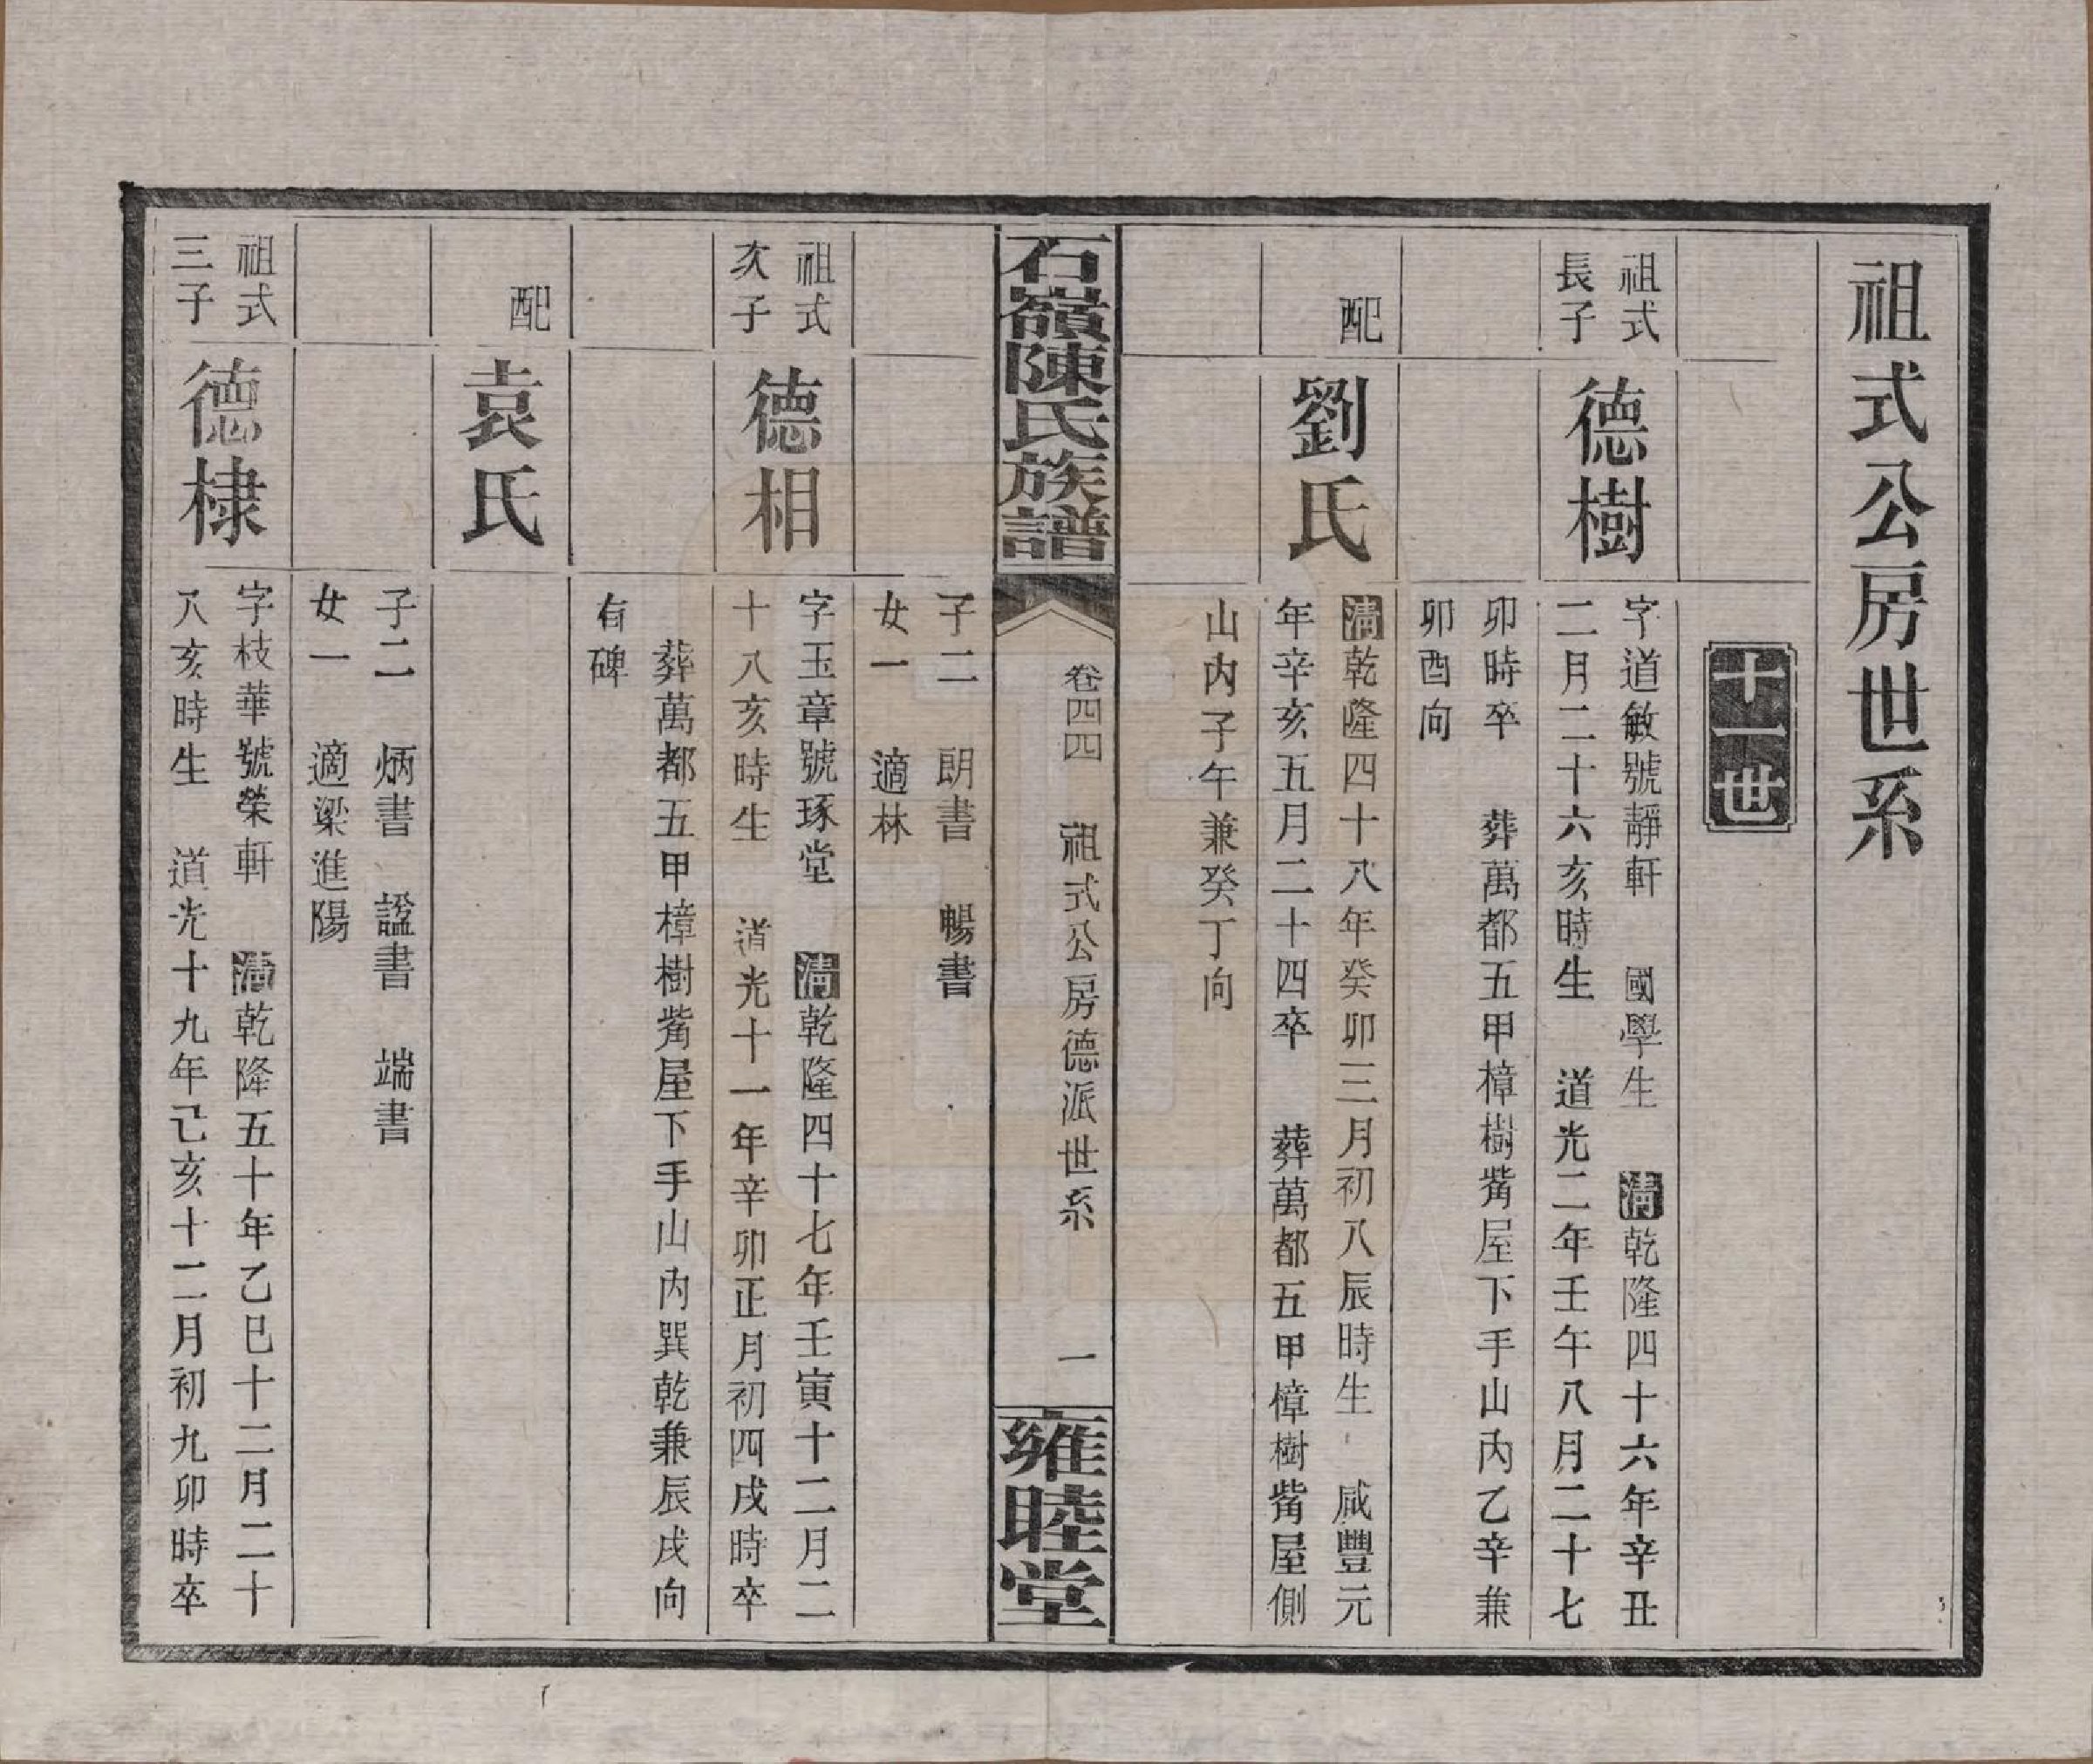 祖式公房世系
十一世
祖式
長子
德樹
字道敏號靜軒　國學生　清乾隆四十六年辛丑
二月二十六亥時生　道光二年壬午八月二十七
卯時卒　葬萬都五甲樟樹觜屋下手山內乙辛兼
卯酉向
配
劉氏
清乾隆四十八年癸卯三月初八辰時生　咸豐元
年辛亥五月二十四卒　葬萬都五甲樟樹觜屋側
山內子午兼癸丁向
石嶺陳氏族譜
卷四四　祖式公房德派世系　一
雍睦堂
子二　朗書　暢書
女一　適林
祖式
次子
德相
字玉章號琢堂　清乾隆四十七年壬寅十二月二
十八亥時生　道光十一年辛卯正月初四戌時卒
葬萬都五甲樟樹觜屋下手山內巽乾兼辰戌向
有碑
配
袁氏
子二　炳書　謚書　端書
女一　適梁進陽
祖式
三子
德棣
字枝華號榮軒　清乾隆五十年乙巳十二月二十
八亥時生　道光十九年己亥十二月初九卯時卒